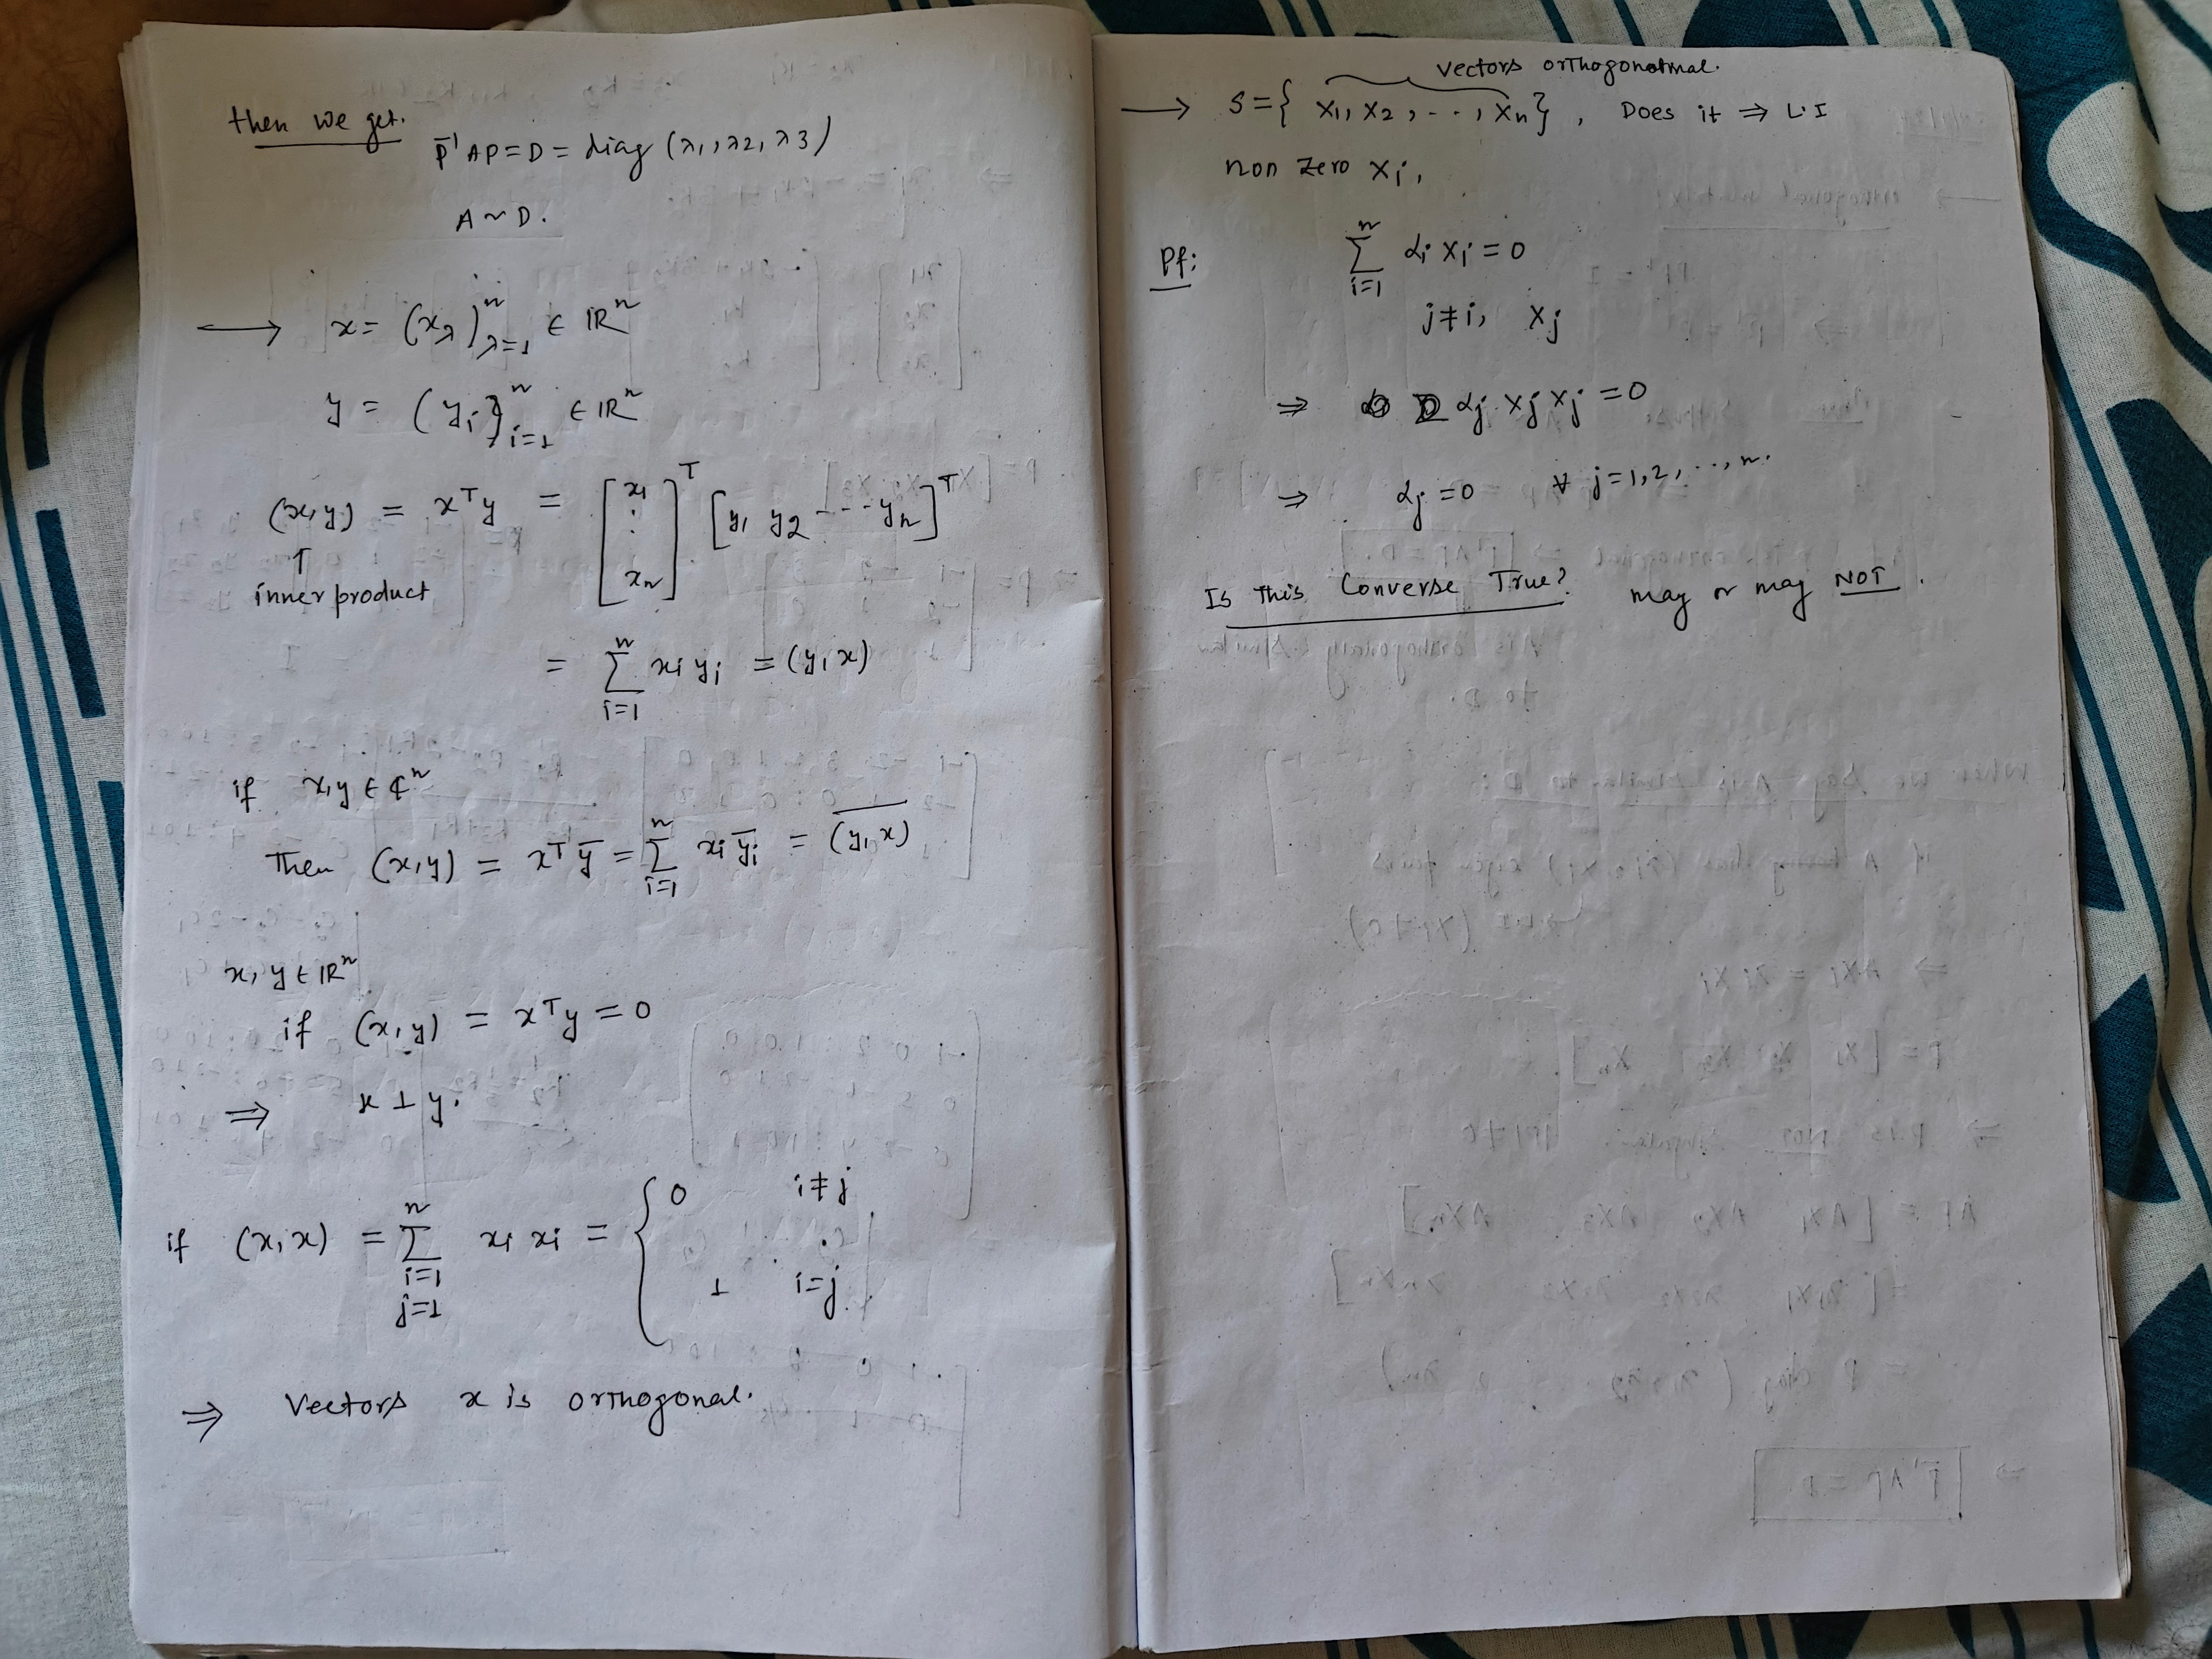 then we get.
P⁻¹AP = D = diag (λ1, λ2, λ3)
A ~ D.
→ x = (xλ)ⁿλ=1 ∈ ℝⁿ
y = (yi)ⁿi=1 ∈ ℝⁿ
(x,y) = xᵀy = [x1 . . xn]ᵀ [y1 y2 --- yn]ᵀ
↑
inner product
= Σⁿi=1 xi yi = (y,x)
if x,y ∈ ℂⁿ
Then (x,y) = xᵀȳ = Σⁿi=1 xi ȳi = \overline{(y,x)}
x, y ∈ ℝⁿ
if (x,y) = xᵀy = 0
⇒ x ⊥ y.
if (x,x) = Σⁿi=1 j=1 xi xi = { 0 i≠j
1 i=j
⇒ Vectors x is orthogonal.
vectors orthogonormal.
→ S = { X1, X2, --, Xn }, Does it ⇒ L.I
non zero Xi,
Pf: Σⁿi=1 αi Xi = 0
j≠i, Xj
⇒ αj Xj Xj = 0
⇒ αj = 0 ∀ j=1,2,...,n.
Is this Converse True? may or may NOT.